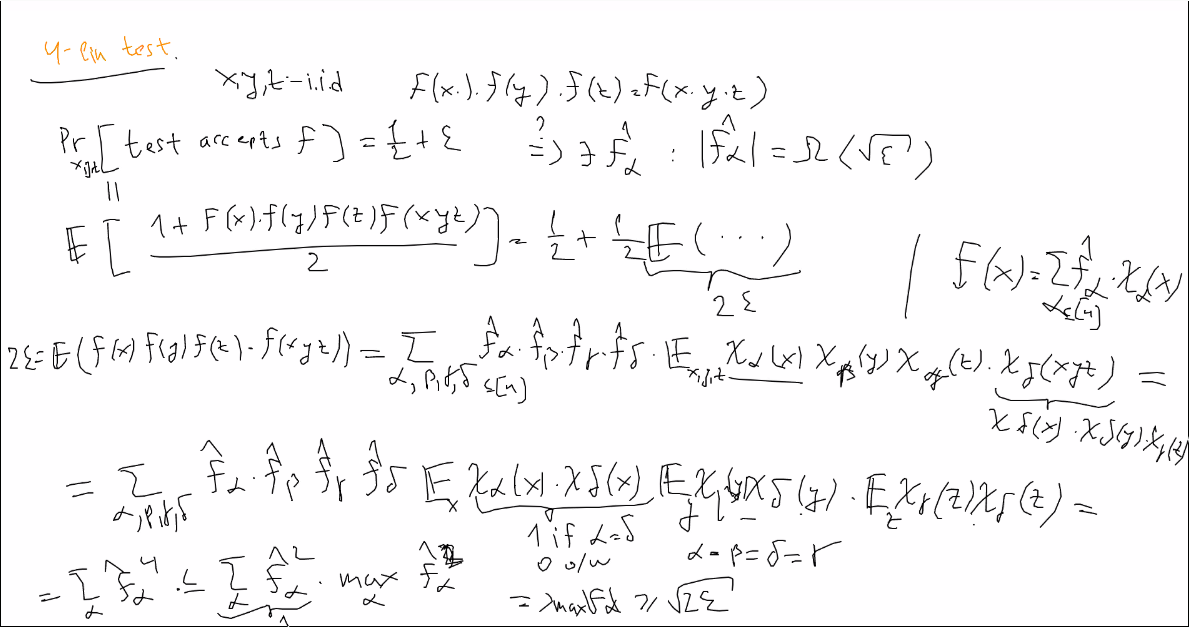 4-lin test.
x,y,z - i.i.d f(x)·f(y)·f(z)=f(x·y·z)
Pr_{x,y,z}[test accepts f] = 1/2 + ε ?⇒ ∃ f̂_α : |f̂_α| = Ω(√ε)
||
𝔼[(1 + f(x)·f(y)f(z)f(xyz))/2] = 1/2 + 1/2 𝔼(···)
2ε
f(x) = Σ_{α⊆[n]} f̂_α · χ_α(x)
2ε = 𝔼(f(x)f(y)f(z)·f(xyz)) = Σ_{α,β,γ,δ ⊆[n]} f̂_α·f̂_β·f̂_γ·f̂_δ · 𝔼_{x,y,z} χ_α(x) χ_β(y) χ_γ(z)·χ_δ(xyz) =
χ_δ(x)·χ_δ(y)·χ_δ(z)
= Σ_{α,β,γ,δ} f̂_α·f̂_β f̂_γ f̂_δ 𝔼_x χ_α(x)·χ_δ(x) 𝔼_y χ_β(y)χ_δ(y)·𝔼_z χ_γ(z)χ_δ(z) =
1 if α=δ
0 o/w
α=β=δ=γ
= Σ_α f̂_α^4 ≤ Σ_α f̂_α^2 · max_α f̂_α^2
1
⇒ max f̂_α ≥ √2ε